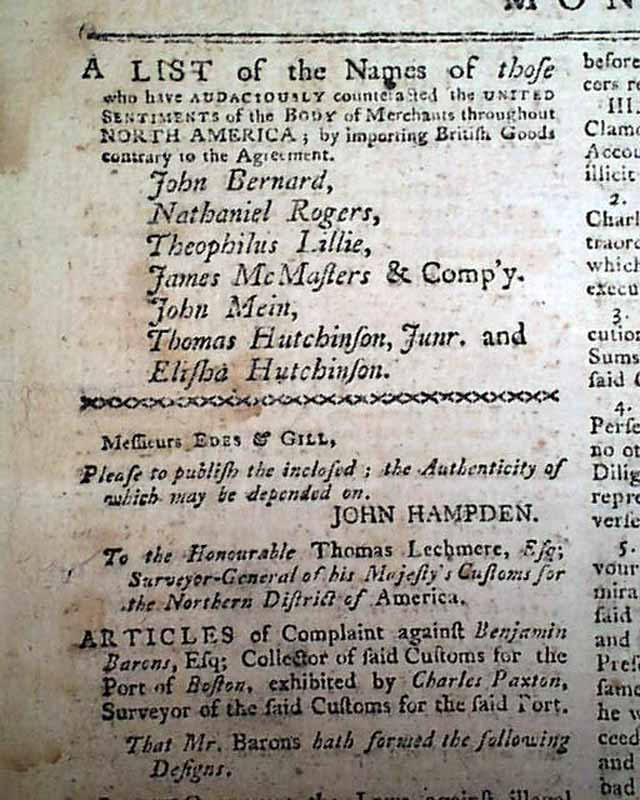 MON
A LIST of the Names of thoſe
who have AUDACIOUSLY counteracted the UNITED
SENTIMENTS of the BODY of Merchants throughout
NORTH AMERICA; by importing Britiſh Goods
contrary to the Agreement.
John Bernard,
Nathaniel Rogers,
Theophilus Lillie,
James McMaſters & Comp'y.
John Mein,
Thomas Hutchinſon, Junr. and
Eliſha Hutchinſon.
Meſſieurs EDES & GILL,
Pleaſe to publiſh the incloſed; the Authenticity of
which may be depended on.
JOHN HAMPDEN.
To the Honourable Thomas Lechmere, Eſq;
Surveyor-General of his Majeſty's Cuſtoms for
the Northern Diſtrict of America.
ARTICLES of Complaint againſt Benjamin
Barons, Eſq; Collector of ſaid Cuſtoms for the
Port of Boſton, exhibited by Charles Paxton,
Surveyor of the ſaid Cuſtoms for the ſaid Port.
That Mr. Barons hath formed the following
Deſigns.
the Laws againſt illegal
before
cers re
III.
Clamo
Accou
illicit
2.
Charl
traord
which
execu
3.
cution
Sums
ſaid C
4.
Perſe
no ot
Dilig
repre
verſe
5.
your
mira
ſaid
and
Preſ
ſame
he w
ceed
and
bad